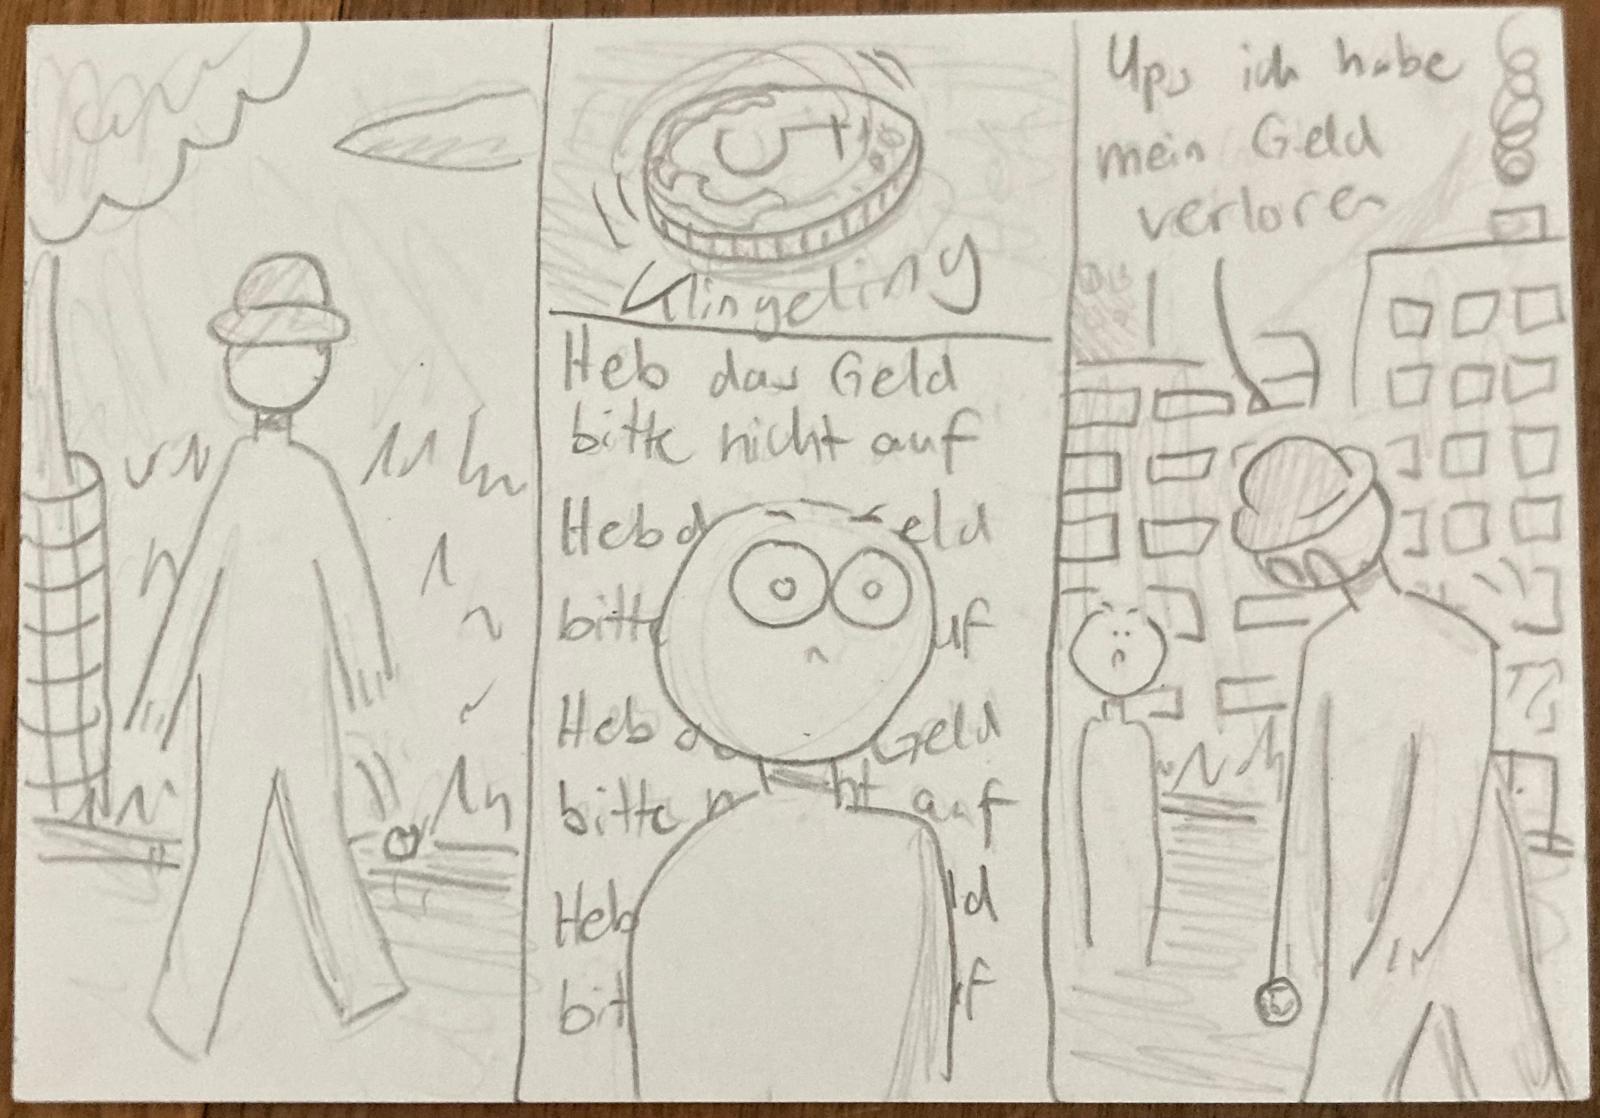 Klingeling
Heb das Geld
bitte nicht auf
Heb d eld
bitte uf
Heb da Geld
bitte n ht auf
Heb ld
bit f
Ups ich habe
mein Geld
verloren